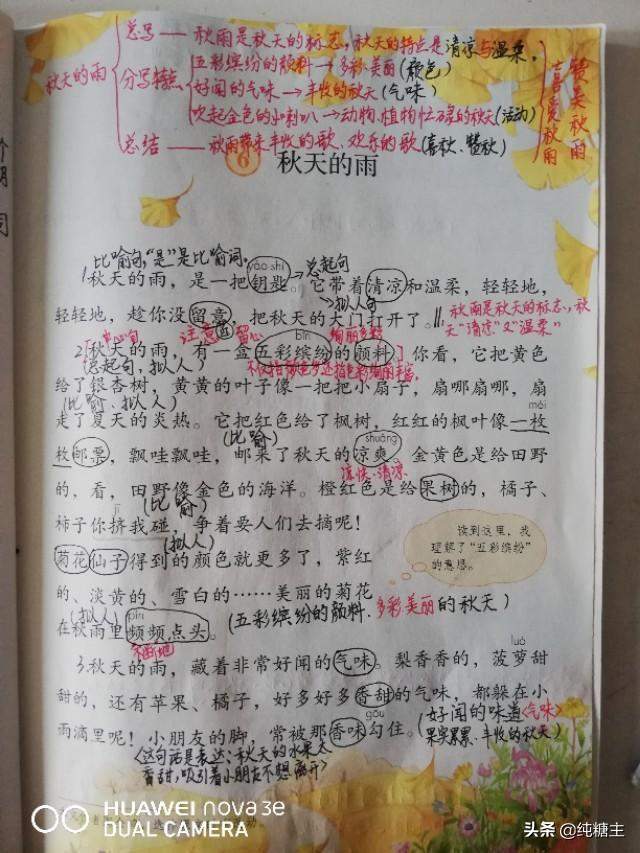 秋天的雨
总写——秋雨是秋天的标志,秋天的特点是清凉与温柔。
分写特点
五彩缤纷的颜料→多彩美丽(颜色)
好闻的气味→丰收的秋天(气味)
吹起金色的小喇叭→动物、植物忙碌的秋天(活动)
总结——秋雨带来丰收的歌、欢乐的歌(喜秋、赞秋)
赞美秋雨
喜爱秋雨
6
秋天的雨
比喻句,“是”是比喻词。
yào shi
总起句
1秋天的雨,是一把钥匙。它带着清凉和温柔,轻轻地,
拟人句
轻轻地,趁你没留意,把秋天的大门打开了。
秋雨是秋天的标志,秋
天“清凉”又“温柔”
中心句
注意
留心
绚丽多彩
bīn
2秋天的雨,有一盒五彩缤纷的颜料。你看,它把黄色
(总起句,拟人)
给了银杏树,黄黄的叶子像一把把小扇子,扇哪扇哪,扇
(比喻、拟人)
méi
走了夏天的炎热。它把红色给了枫树,红红的枫叶像一枚
(比喻)
shuǎng
枚邮票,飘哇飘哇,邮来了秋天的凉爽。金黄色是给田野
清凉
的,看,田野像金色的海洋。橙红色是给果树的,橘子、
(比喻)
jǐ
柿子你挤我碰,争着要人们去摘呢!
(拟人)
菊花仙子得到的颜色就更多了,紫红
的、淡黄的、雪白的……美丽的菊花
(拟人)
pín
在秋雨里频频点头。
(五彩缤纷的颜料.多彩美丽的秋天)
读到这里,我
理解了“五彩缤纷”
的意思。
不断地
luó
3秋天的雨,藏着非常好闻的气味。梨香香的,菠萝甜
甜的,还有苹果、橘子,好多好多香甜的气味,都躲在小
gōu
雨滴里呢!小朋友的脚,常被那香味勾住。
(好闻的味道<气味>
果实累累、丰收的秋天)
<这句话是表达:秋天的水果太
香甜,吸引着小朋友不想离开>
HUAWEI nova 3e
DUAL CAMERA
头条 @纯糖主